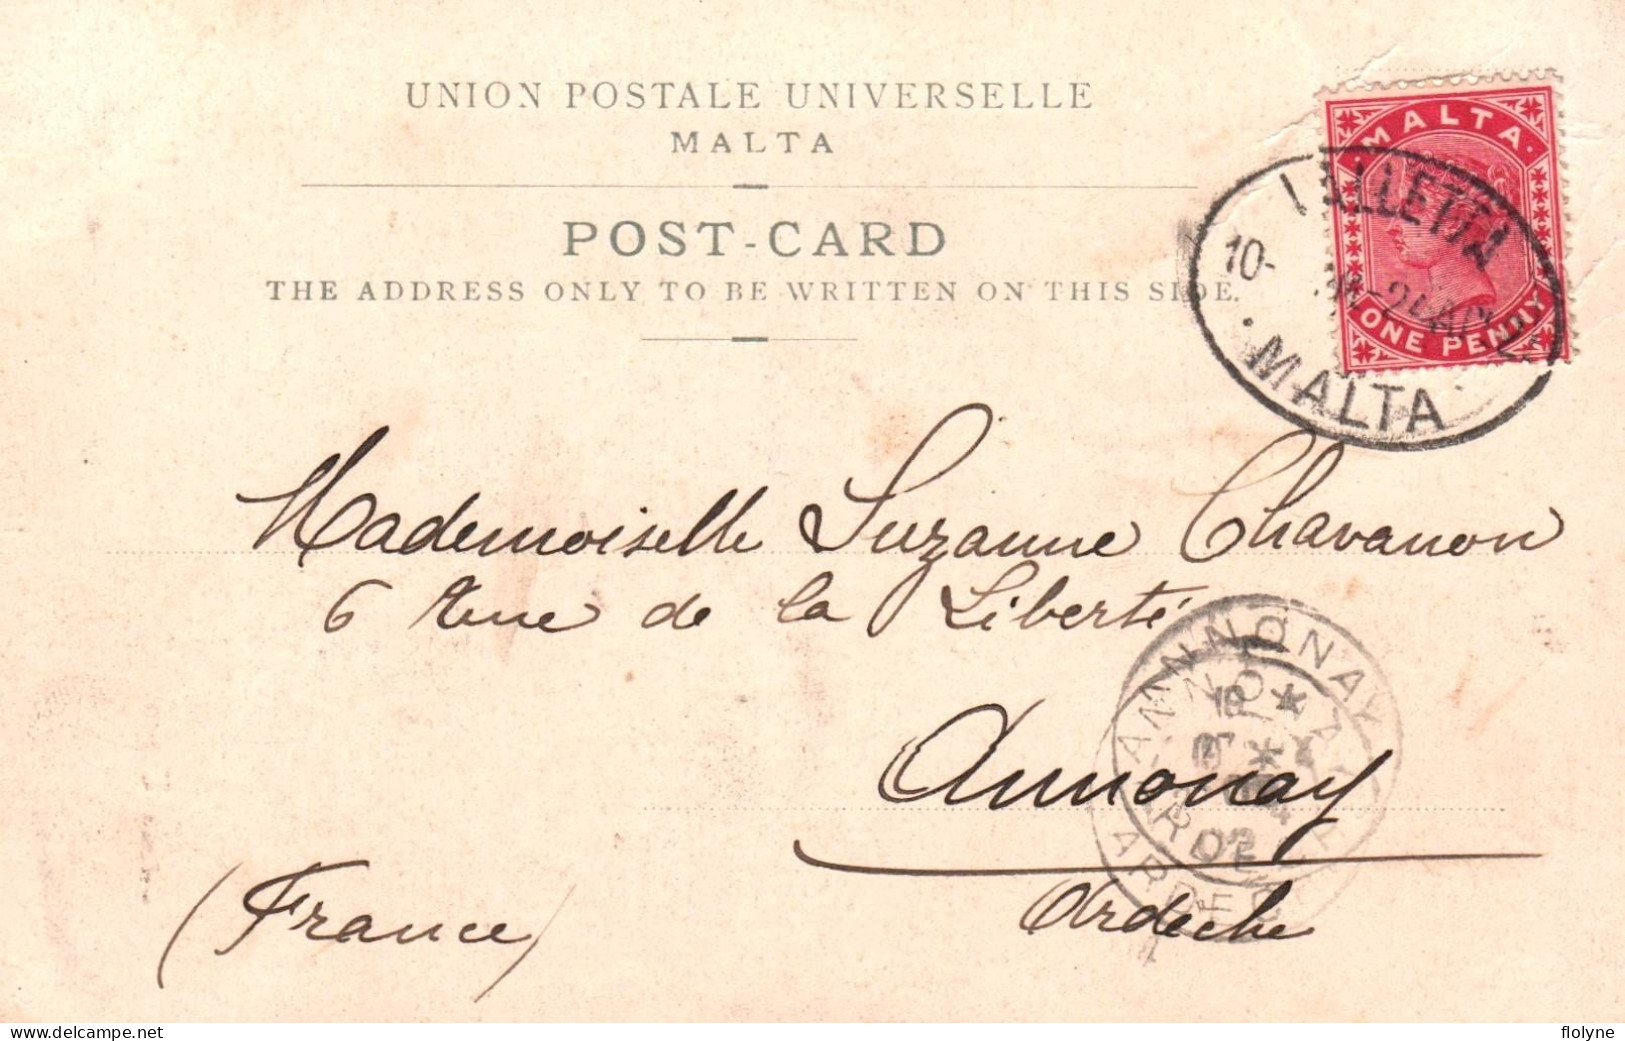 UNION POSTALE UNIVERSELLE
MALTA
POST-CARD
THE ADDRESS ONLY TO BE WRITTEN ON THIS SIDE.
MALTA
ONE PENNY
VALLETTA
10-
MALTA
Mademoiselle Suzanne Chavanon
6 rue de la Liberté
Annonay
Ardèche
(France)
ANNONAY
ARDECHE
delcampe.net
flolyne